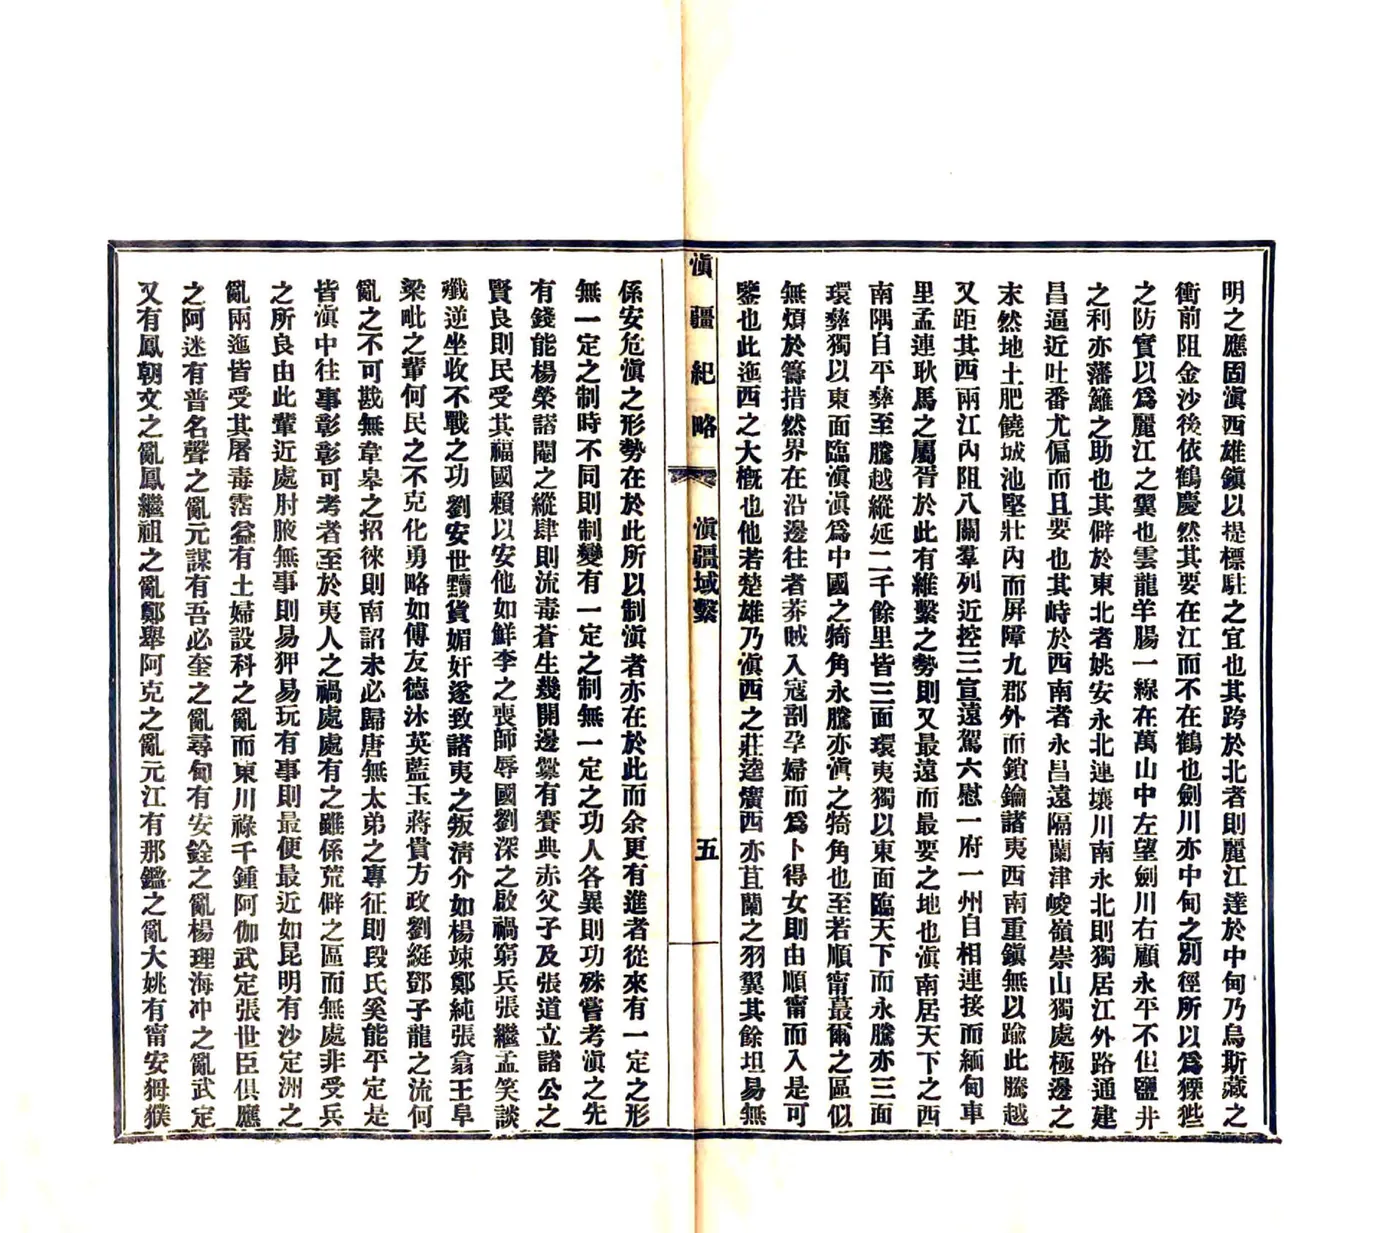 明之應固滇西雄鎭以提標駐之宜也其跨於北者則麗江達於中甸乃烏斯藏之
衝前阻金沙後依鶴慶然其要在江而不在鶴也劍川亦中甸之別徑所以爲猓些
之防實以爲麗江之翼也雲龍羊腸一線在萬山中左望劍川右顧永平不但鹽井
之利亦藩籬之助也其僻於東北者姚安永北連壤川南永北則獨居江外路通建
昌逼近吐番尤偏而且要也其峙於西南者永昌遠隔蘭津峻嶺崇山獨處極邊之
末然地土肥饒城池堅壯內而屏障九郡外而鎖鑰諸夷西南重鎭無以踰此騰越
又距其西兩江內阻八關羣列近控三宣遠駕六慰一府一州自相連接而緬甸車
里孟連耿馬之屬胥於此有維繫之勢則又最遠而最要之地也滇南居天下之西
南隅自平彝至騰越縱延二千餘里皆三面環夷獨以東面臨天下而永騰亦三面
環彝獨以東面臨滇滇爲中國之犄角永騰亦滇之犄角也至若順甯蕞爾之區似
無煩於籌措然界在沿邊往者莽賊入寇剖孕婦而爲卜得女則由順甯而入是可
鑒也此迤西之大槪也他若楚雄乃滇西之莊逵廣西亦苴蘭之羽翼其餘坦易無
滇疆紀略
滇疆域繫
五
係安危滇之形勢在於此所以制滇者亦在於此而余更有進者從來有一定之形
無一定之制時不同則制變有一定之制無一定之功人各異則功殊嘗考滇之先
有錢能楊榮諸閹之縱肆則流毒蒼生幾開邊釁有賽典赤父子及張道立諸公之
賢良則民受其福國賴以安他如鮮李之喪師辱國劉深之啟禍窮兵張繼孟笑談
殲逆坐收不戰之功劉安世黷貨媚奸遂致諸夷之叛淸介如楊竦鄭純張翕王阜
梁毗之輩何民之不克化勇略如傅友德沐英藍玉蔣貴方政劉綎鄧子龍之流何
亂之不可戡無韋皋之招徠則南詔未必歸唐無太弟之專征則段氏奚能平定是
皆滇中往事彰彰可考者至於夷人之禍處處有之雖係荒僻之區而無處非受兵
之所良由此輩近處肘腋無事則易狎易玩有事則最便最近如昆明有沙定洲之
亂兩迤皆受其屠毒霑益有土婦設科之亂而東川祿千鍾阿伽武定張世臣俱應
之阿迷有普名聲之亂元謀有吾必奎之亂尋甸有安銓之亂楊理海冲之亂武定
又有鳳朝文之亂鳳繼祖之亂鄭舉阿克之亂元江有那鑑之亂大姚有甯安㺯㺪